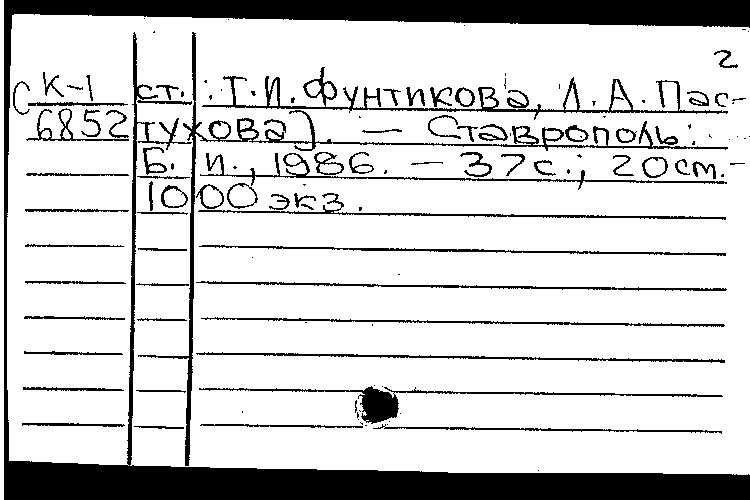 2
С К-1 ст.: Т.И. Фунтикова, Л.А. Пас-
6852 тухова]. — Ставрополь:
Б. и., 1986. — 37с.; 20см. —
1000 экз.